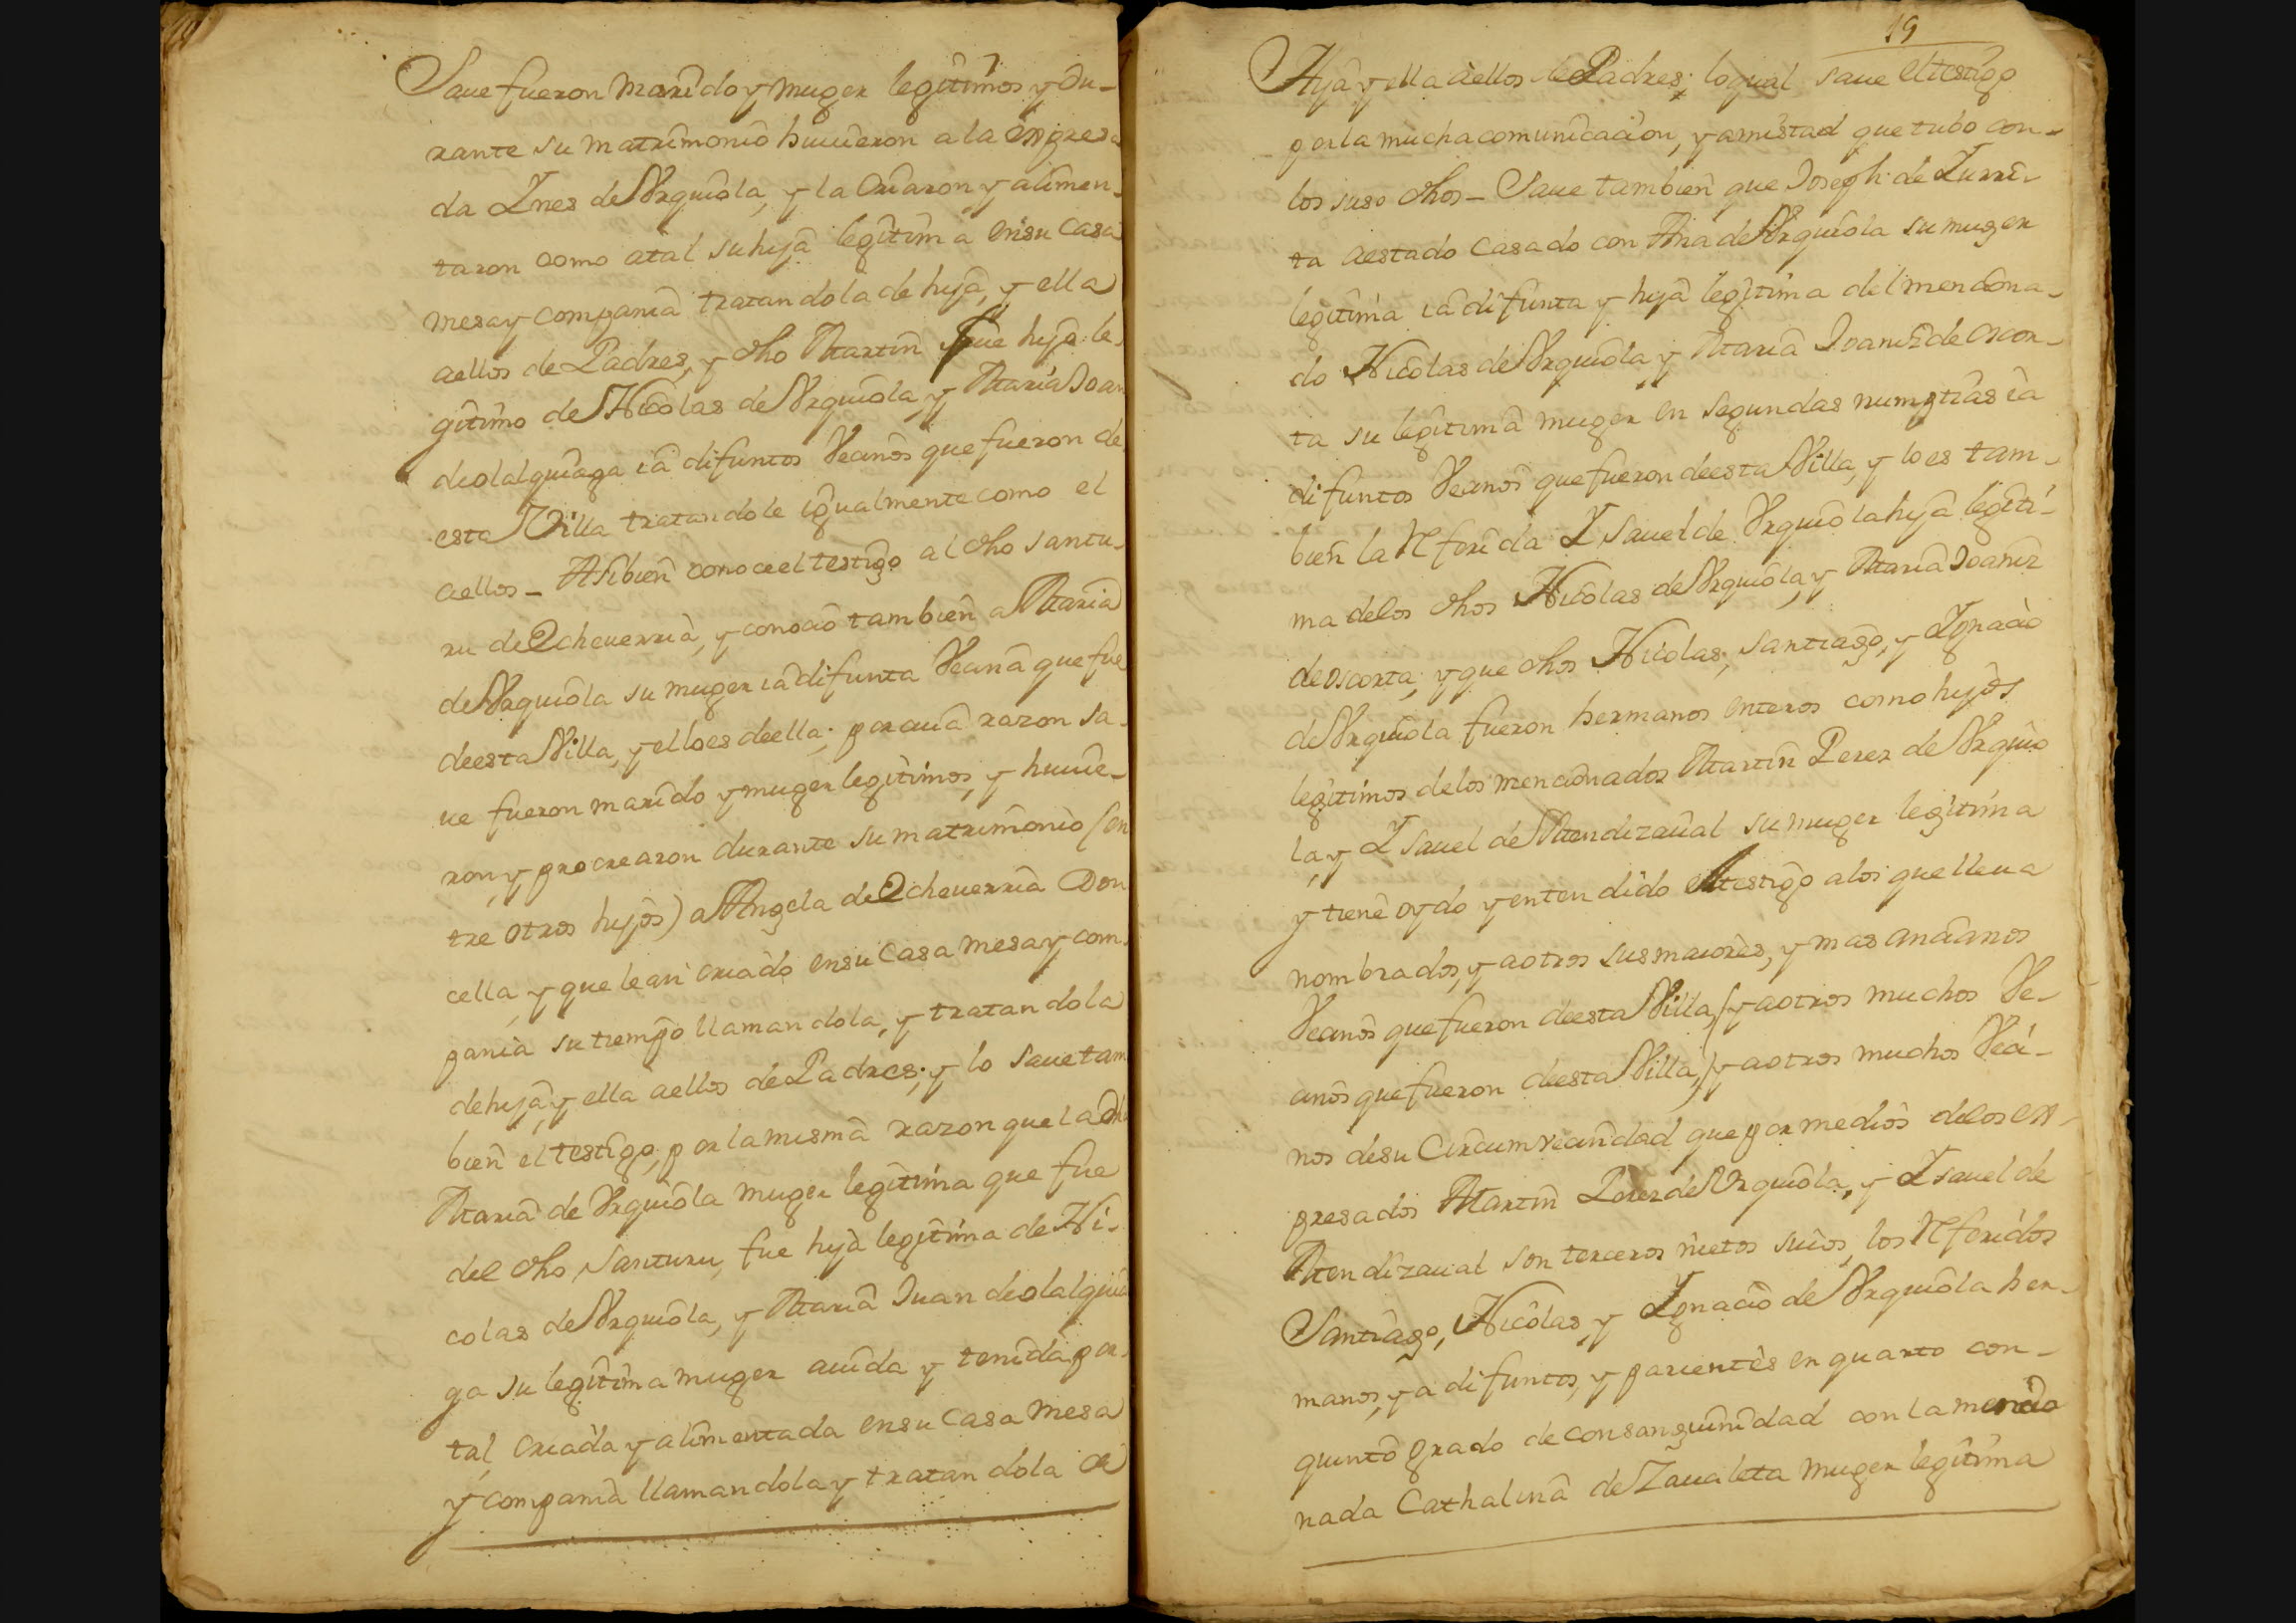 Saue fueron Marido y muger legitimos y Du-
rante su matrimonio huuieron a la Expresa
da Ines de Vrquiola, y la Criaron, y alimen-
taron como atal su hija legitima en su Casa
mesa y compania tratandola de hija, y ella
aellos de Padres, y dho Martin fue hijo le-
gitimo de Nicolas de Vrquiola, y Maria Joan
de olalquiaga ia difuntos Vecinos que fueron de
esta Villa tratandole igualmente como el
aellos – Asibien conoce el testigo al dho Santu-
ru de Echeuerria, y conocio tambien a Maria
de Vrquiola su muger ia difunta Vecina que fue
de esta Villa, y el lo es de ella; por cuia razon sa-
ue fueron marido y muger legitimos, y huuie-
ron, y procrearon durante su matrimonio (en
tre otros hijos) a Angela de Echeuerria Don
cella, y que le an criado en su Casa mesa y com-
pania su tiempo llamandola, y tratandola
de hija, y ella aellos de Padres; y lo Saue tam
bien el testigo, por la misma razon que la dha
Maria de Vrquiola muger legitima que fue
del dho Santuru, fue hija legitima de Ni-
colas de Vrquiola, y Maria Juan de olalquia
ga su legitima muger auida y tenida por
tal, criada y alimentada en su Casa Mesa
y compania llamandola y tratandola de
19
Hija y ella aellos de Padres; lo qual saue el testigo
por la mucha comunicacion, y amistad que tubo con-
los suso dhos – Saue tambien que Joseph de Zurri-
ta aestado Casado con Ana de Vrquiola su muger
legitima ia difunta y hija legitima del menciona-
do Nicolas de Vrquiola y Maria Joaniz de oscor-
ta su legitima muger en segundas numptias ia
difuntos Vecinos que fueron de esta Villa, y lo es tam-
bien la Referida Isauel de Vrquiola hija legiti-
ma de los dhos Nicolas de Vrquiola, y Maria Joaniz
de oscorta; y que dhos Nicolas, Santiago, y Ignacio
de Vrquiola fueron hermanos enteros como hijos
legitimos de los mencionados Martin Perez de Vrquio
la, y Isauel de Mendizaual su muger legitima
y tiene oydo y entendido el testigo alos que lleua
nombrados, y aotros sus maiores, y mas ancianos
Vecinos que fueron de esta Villa, (y aotros muchos Ve-
cinos que fueron de esta Villa,) y aotros muchos Veci-
nos de su Circumvecindad que por medios de los ex-
presados Martin Perez de Vrquiola, y Isauel de
Mendizaual son terceros nietos suios, los Referidos
Santiago, Nicolas, y Ignacio de Vrquiola her-
manos, ya difuntos, y parientes en quarto con-
quinto grado de consanguinidad con la mencio
nada Cathalina de Zaualeta muger legitima